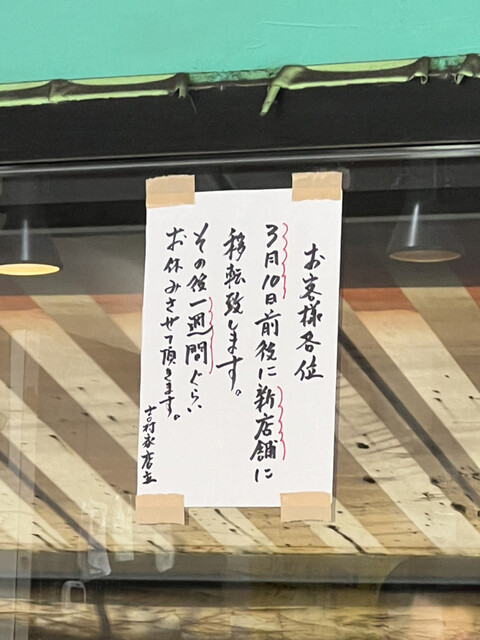 お客様各位
3月10日前後に新店舗に
移転致します。
その後一週間ぐらい
お休みさせて頂きます。
吉村家店主